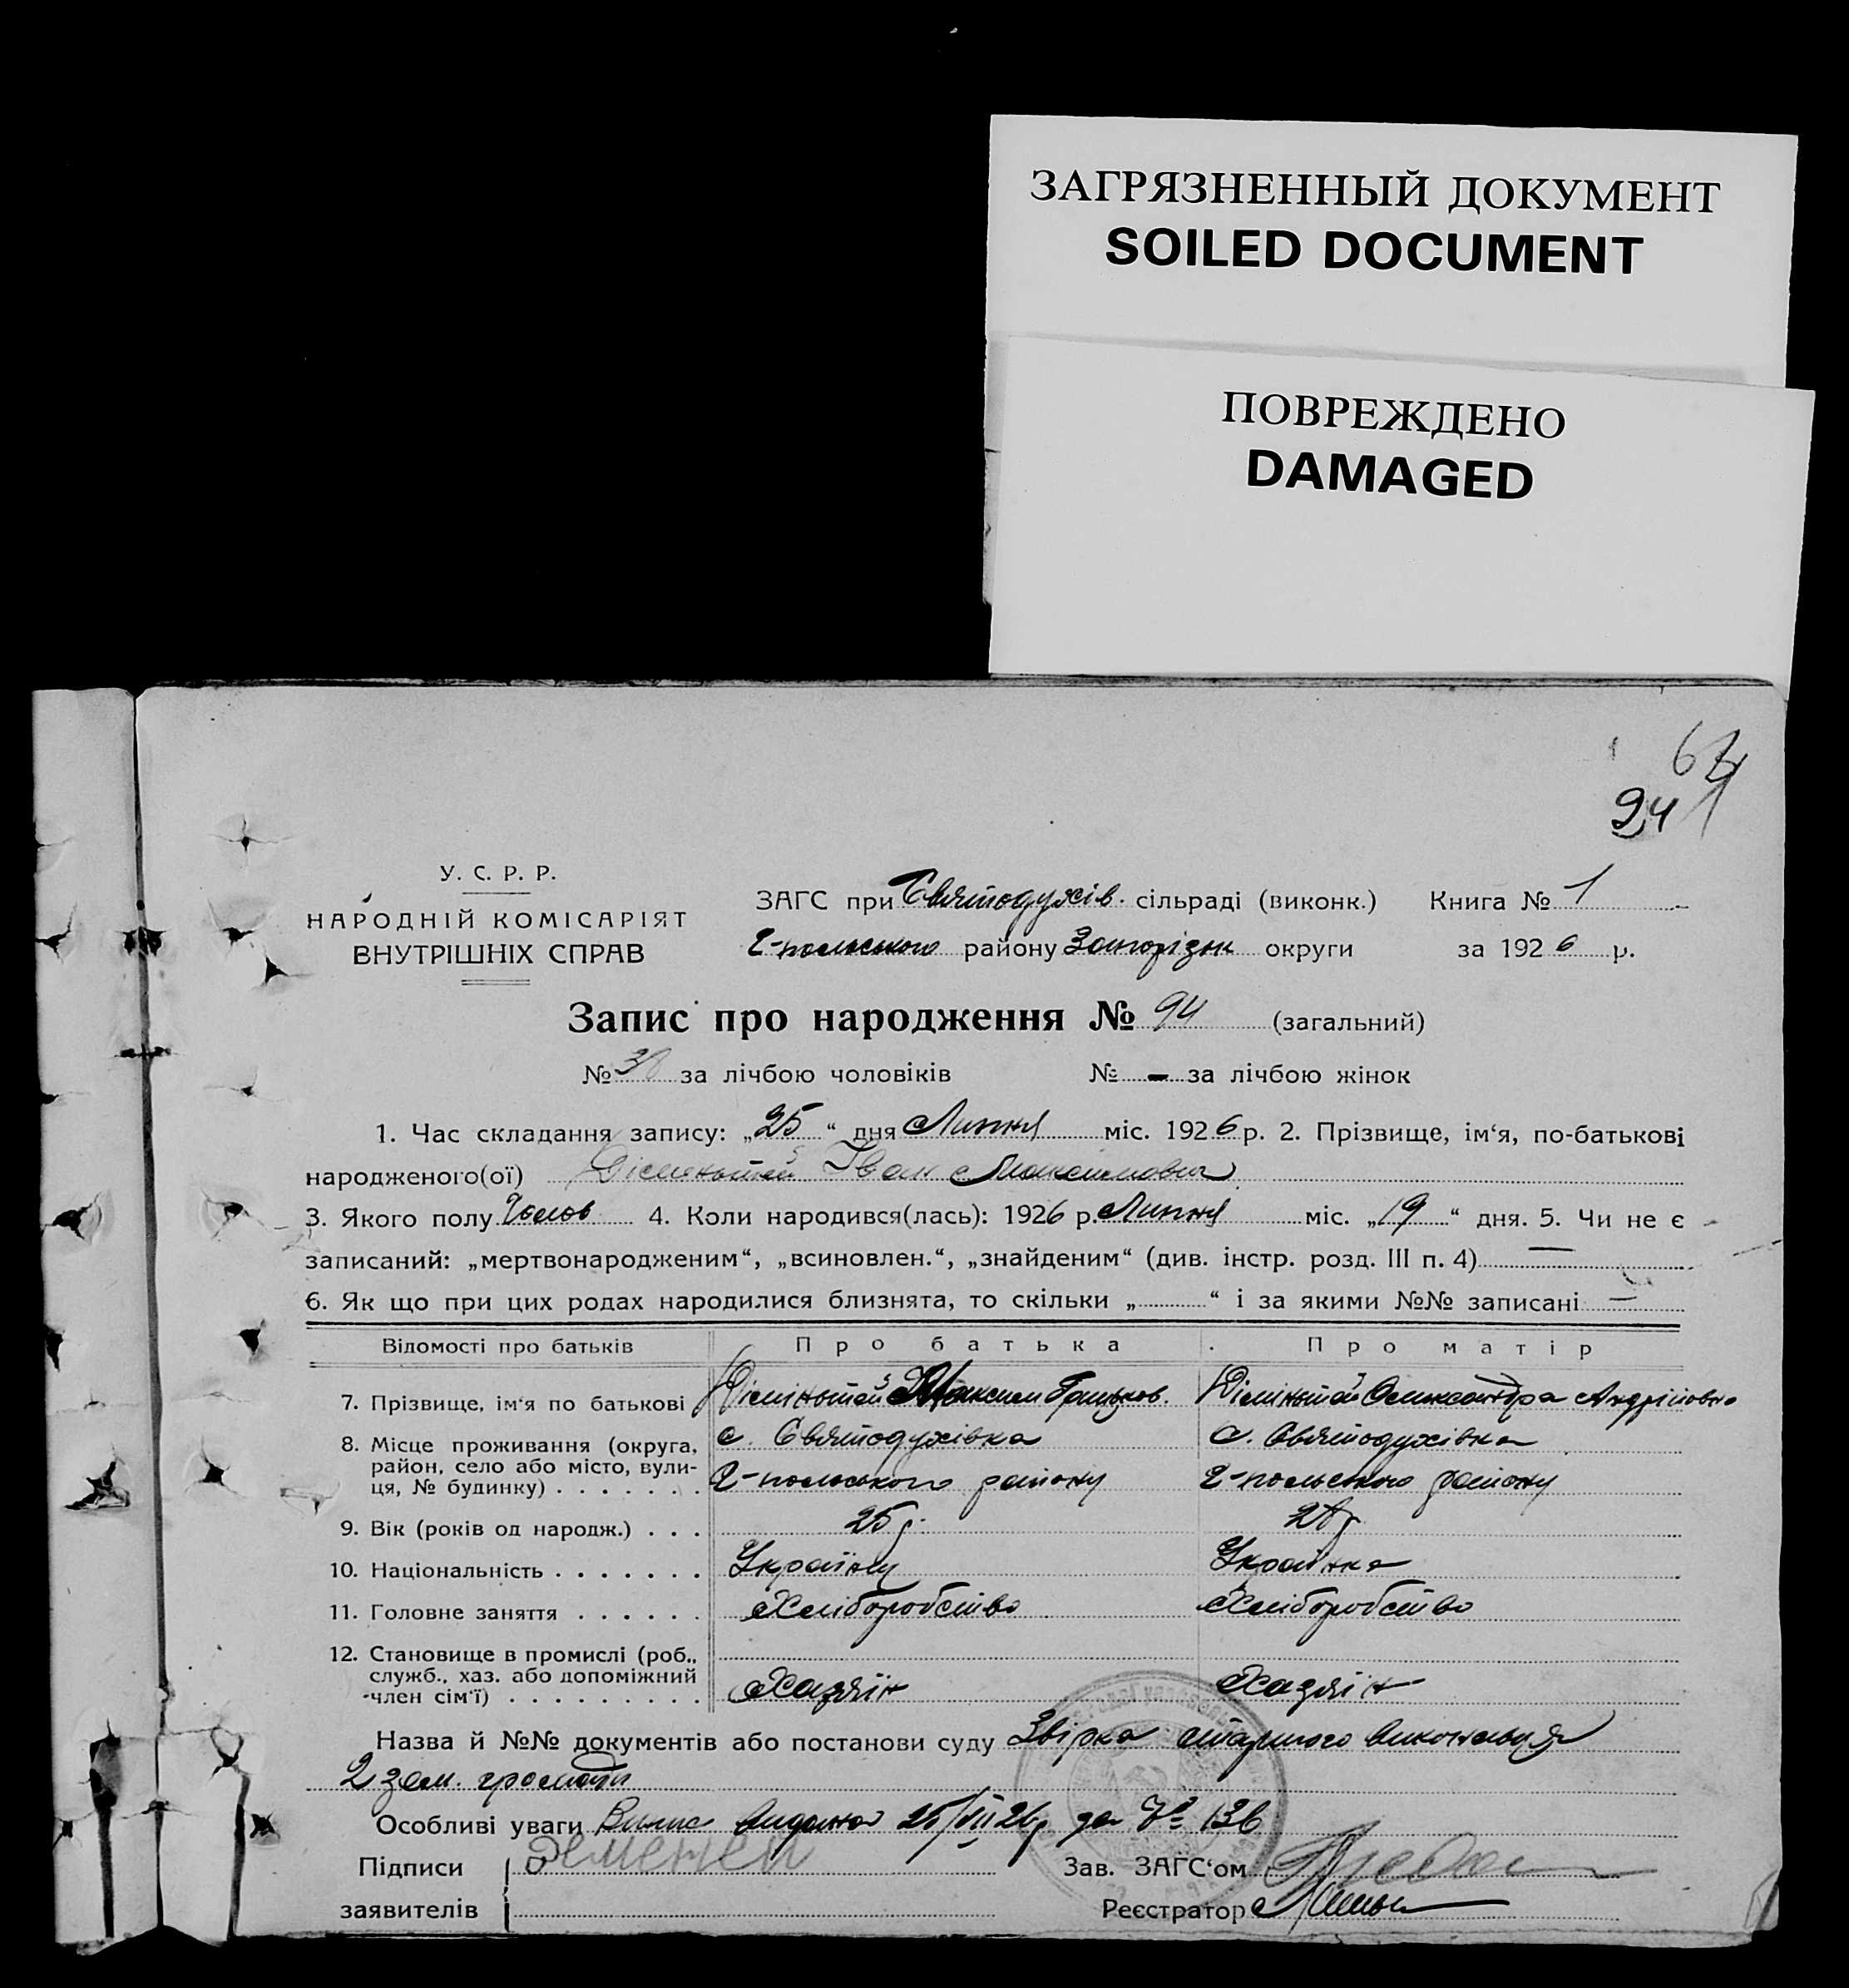 ЗАГРЯЗНЕННЫЙ ДОКУМЕНТ
SOILED DOCUMENT
ПОВРЕЖДЕНО
DAMAGED
94
У. С. Р. Р.
НАРОДНІЙ КОМІСАРІЯТ
ВНУТРІШНІХ СПРАВ
ЗАГС при Святодухів. сільраді (виконк.) Книга № 1
району Запорізьк округи за 1926 р.
Запис про народження № 94 (загальний)
№ за лічбою чоловіків № – за лічбою жінок
1. Час складання запису: „25“ дня Липня міс. 1926 р. 2. Прізвище, ім‘я, по-батькові
народженого(ої) Іван Максимович
3. Якого полу Чолов 4. Коли народився(лась): 1926 р. Липня міс. „19“ дня. 5. Чи не є
записаний: „мертвонародженим“, „всиновлен.“, „знайденим“ (див. інстр. розд. III п. 4) —
6. Як що при цих родах народилися близнята, то скільки „ “ і за якими №№ записані —
Відомості про батьків Про батька Про матір
7. Прізвище, ім‘я по батькові Максим Олександра Андріївна
8. Місце проживання (округа, с. Святодухівка с. Святодухівка
район, село або місто, вули-
ця, № будинку) . . . . . . . району району
9. Вік (років од народж.) . . . 25 р.
10. Національність . . . . . . . Українка
11. Головне заняття . . . . . . Хліборобство Хліборобство
12. Становище в промислі (роб.,
служб., хаз. або допоміжний
член сім‘ї) . . . . . . . . . Хазяїн Хазяїн
Назва й №№ документів або постанови суду старшого виконавця
2 зем. громади
Особливі уваги Випис видано 25/VII 26 р за № 136
Підписи Зав. ЗАГС‘ом
заявителів Реєстратор